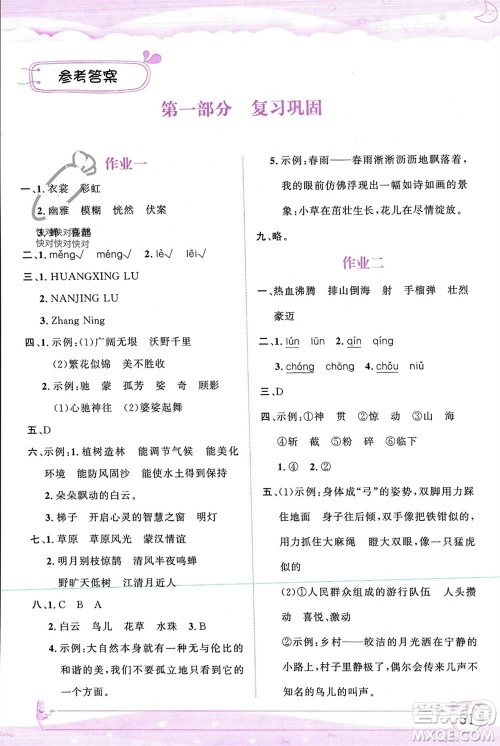 参考答案
第一部分　复习巩固
作业一
一、1. 衣裳　彩虹
2. 幽雅　模糊　恍然　伏案
3. 蝉　喜鹊
快对快对快对
快对快对快对
二、1. měng√　méng√　2. lò√　lēi√
三、1. HUANGXING LU
2. NANJING LU
3. Zhang Ning
四、1. 示例：(1)广阔无垠　沃野千里
(2)繁花似锦　美不胜收
2. 示例：驰　蒙　孤芳　婆　奇　顾影
(1)心驰神往　(2)婆娑起舞
五、D
六、示例：1. 植树造林　能调节气候　能美化
环境　能防风固沙　能使水土得到保持
2. 朵朵飘动的白云。
3. 梯子　开启心灵的智慧之窗　明灯
七、1. 草原　草原　蒙汉情谊
2. 明月别枝惊鹊　清风半夜鸣蝉
野旷天低树　江清月近人
八、1. C　B　A
2. 白云　鸟儿　花草　水珠　3. D
4. 示例：大自然本身具有无与伦比的
美。我们要不要孤立地只看到它的
一个方面。
5. 示例：春雨——春雨淅淅沥沥地飘落着，
我的前面仿佛浮现出一幅如诗如画的景
象：小草在茁壮生长，花儿在尽情绽放。
九、略。
作业二
一、热血沸腾　排山倒海　射　手榴弹　壮烈
豪迈
二、1. lún　lūn　2. qìn　qīn
3. chōng　chóng　4. chǒu　niǔ
三、D
四、示例：①神　②贯　③惊　④动
④斩　截　⑤粉　⑥临下
1. ④　2. ①
五、(1)示例：身体成“弓”的姿势，双脚用力踩
住地面　身子前倾，双手像把铁钳似的，
紧紧抓住大麻绳　嘴巴鼓得像个小皮球
似的
(2)示例：人民群众组成的游行队伍　五星
红旗迎风飘扬，人们热烈欢呼　自豪、
喜悦、激动
六、示例：乡村——皎洁的月光洒在宁静的
小路上，村子里灯光点点，偶尔传来几声
鸟儿的叫声。
31
答案圈
MXQE.COM